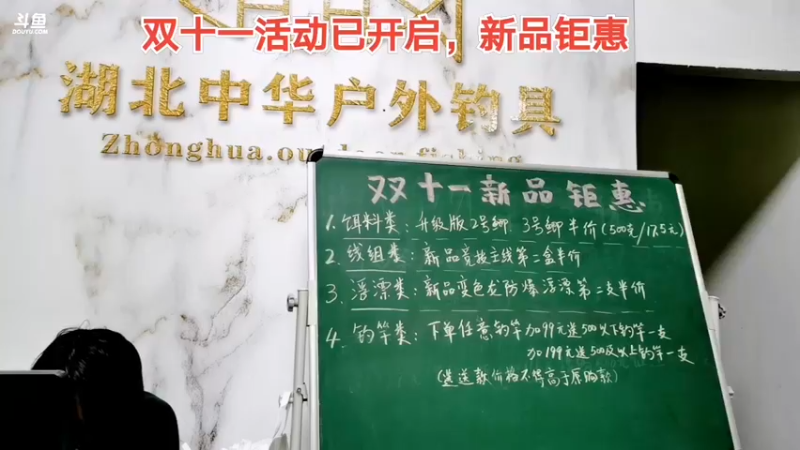 斗鱼
DOUYU.COM
双十一活动已开启，新品钜惠
湖北中华户外钓具
Zhonghua.ou
fishing
双十一新品钜惠
1.饵料类：升级版2号鲫 3号鲫半价(500克/17.5元)
2.线组类：新品竞技主线第二盒半价
3.浮漂类：新品变色龙防爆浮漂第二支半价
4.钓竿类：下单任意钓竿加99元送500以下钓竿一支
加199元送500及以上钓竿一支
送款价格不得高于原购款)